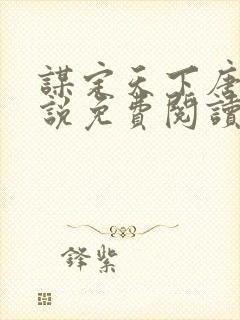 謀定天下唐
說免費閱讀
鋒紫